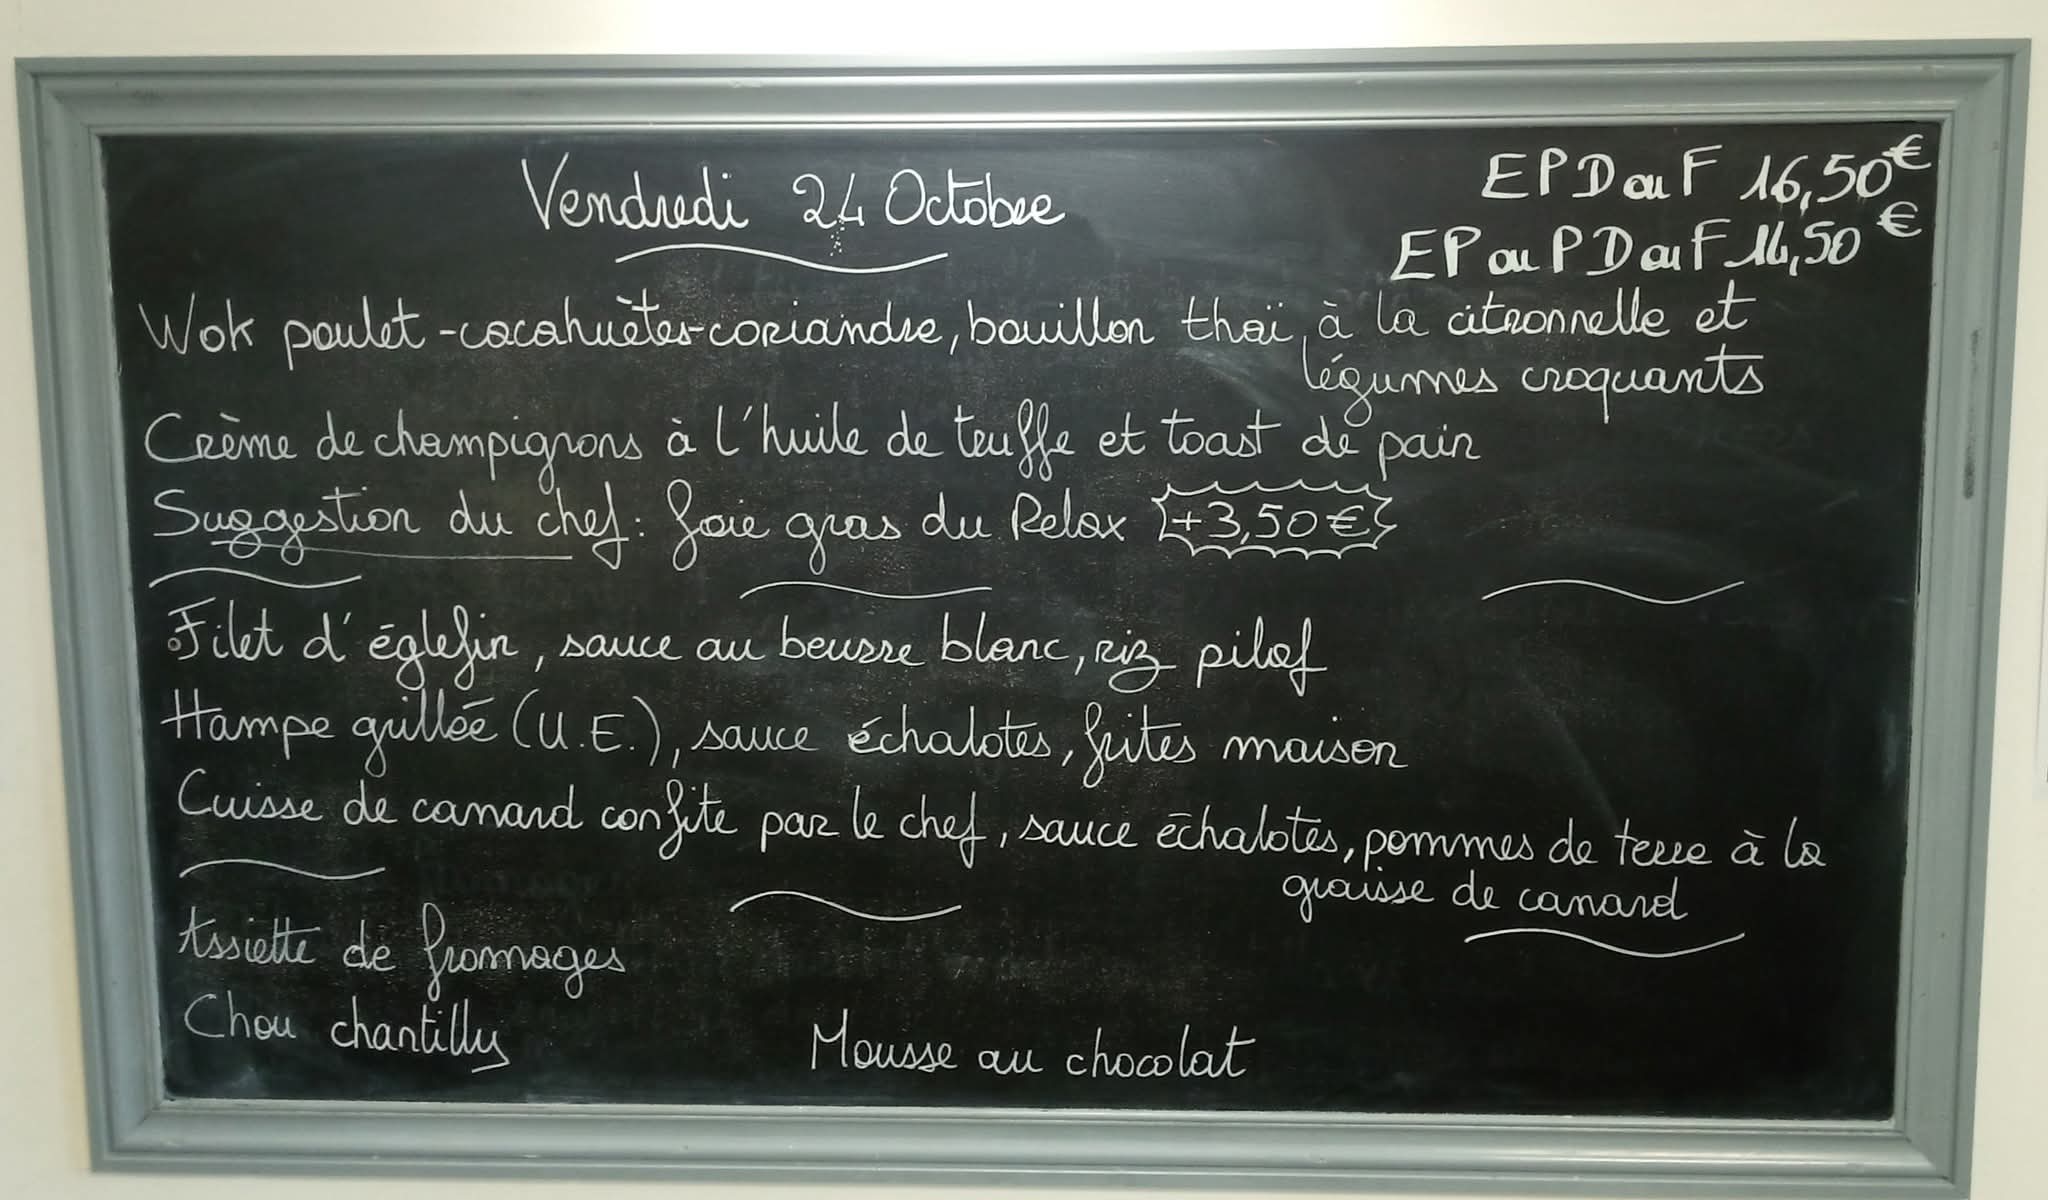 Vendredi 24 Octobre
E P D ou F 16,50€
EP ou P D ou F 14,50€
Wok poulet-cacahuètes-coriandre, bouillon thaï à la citronnelle et
légumes croquants
Crème de champignons à l'huile de truffe et toast de pain
Suggestion du chef: foie gras du Relax +3,50€
Filet d'églefin, sauce au beurre blanc, riz pilaf
Hampe grillée (U.E.), sauce échalotes, frites maison
Cuisse de canard confite par le chef, sauce échalotes, pommes de terre à la
graisse de canard
Assiette de fromages
Chou chantilly
Mousse au chocolat